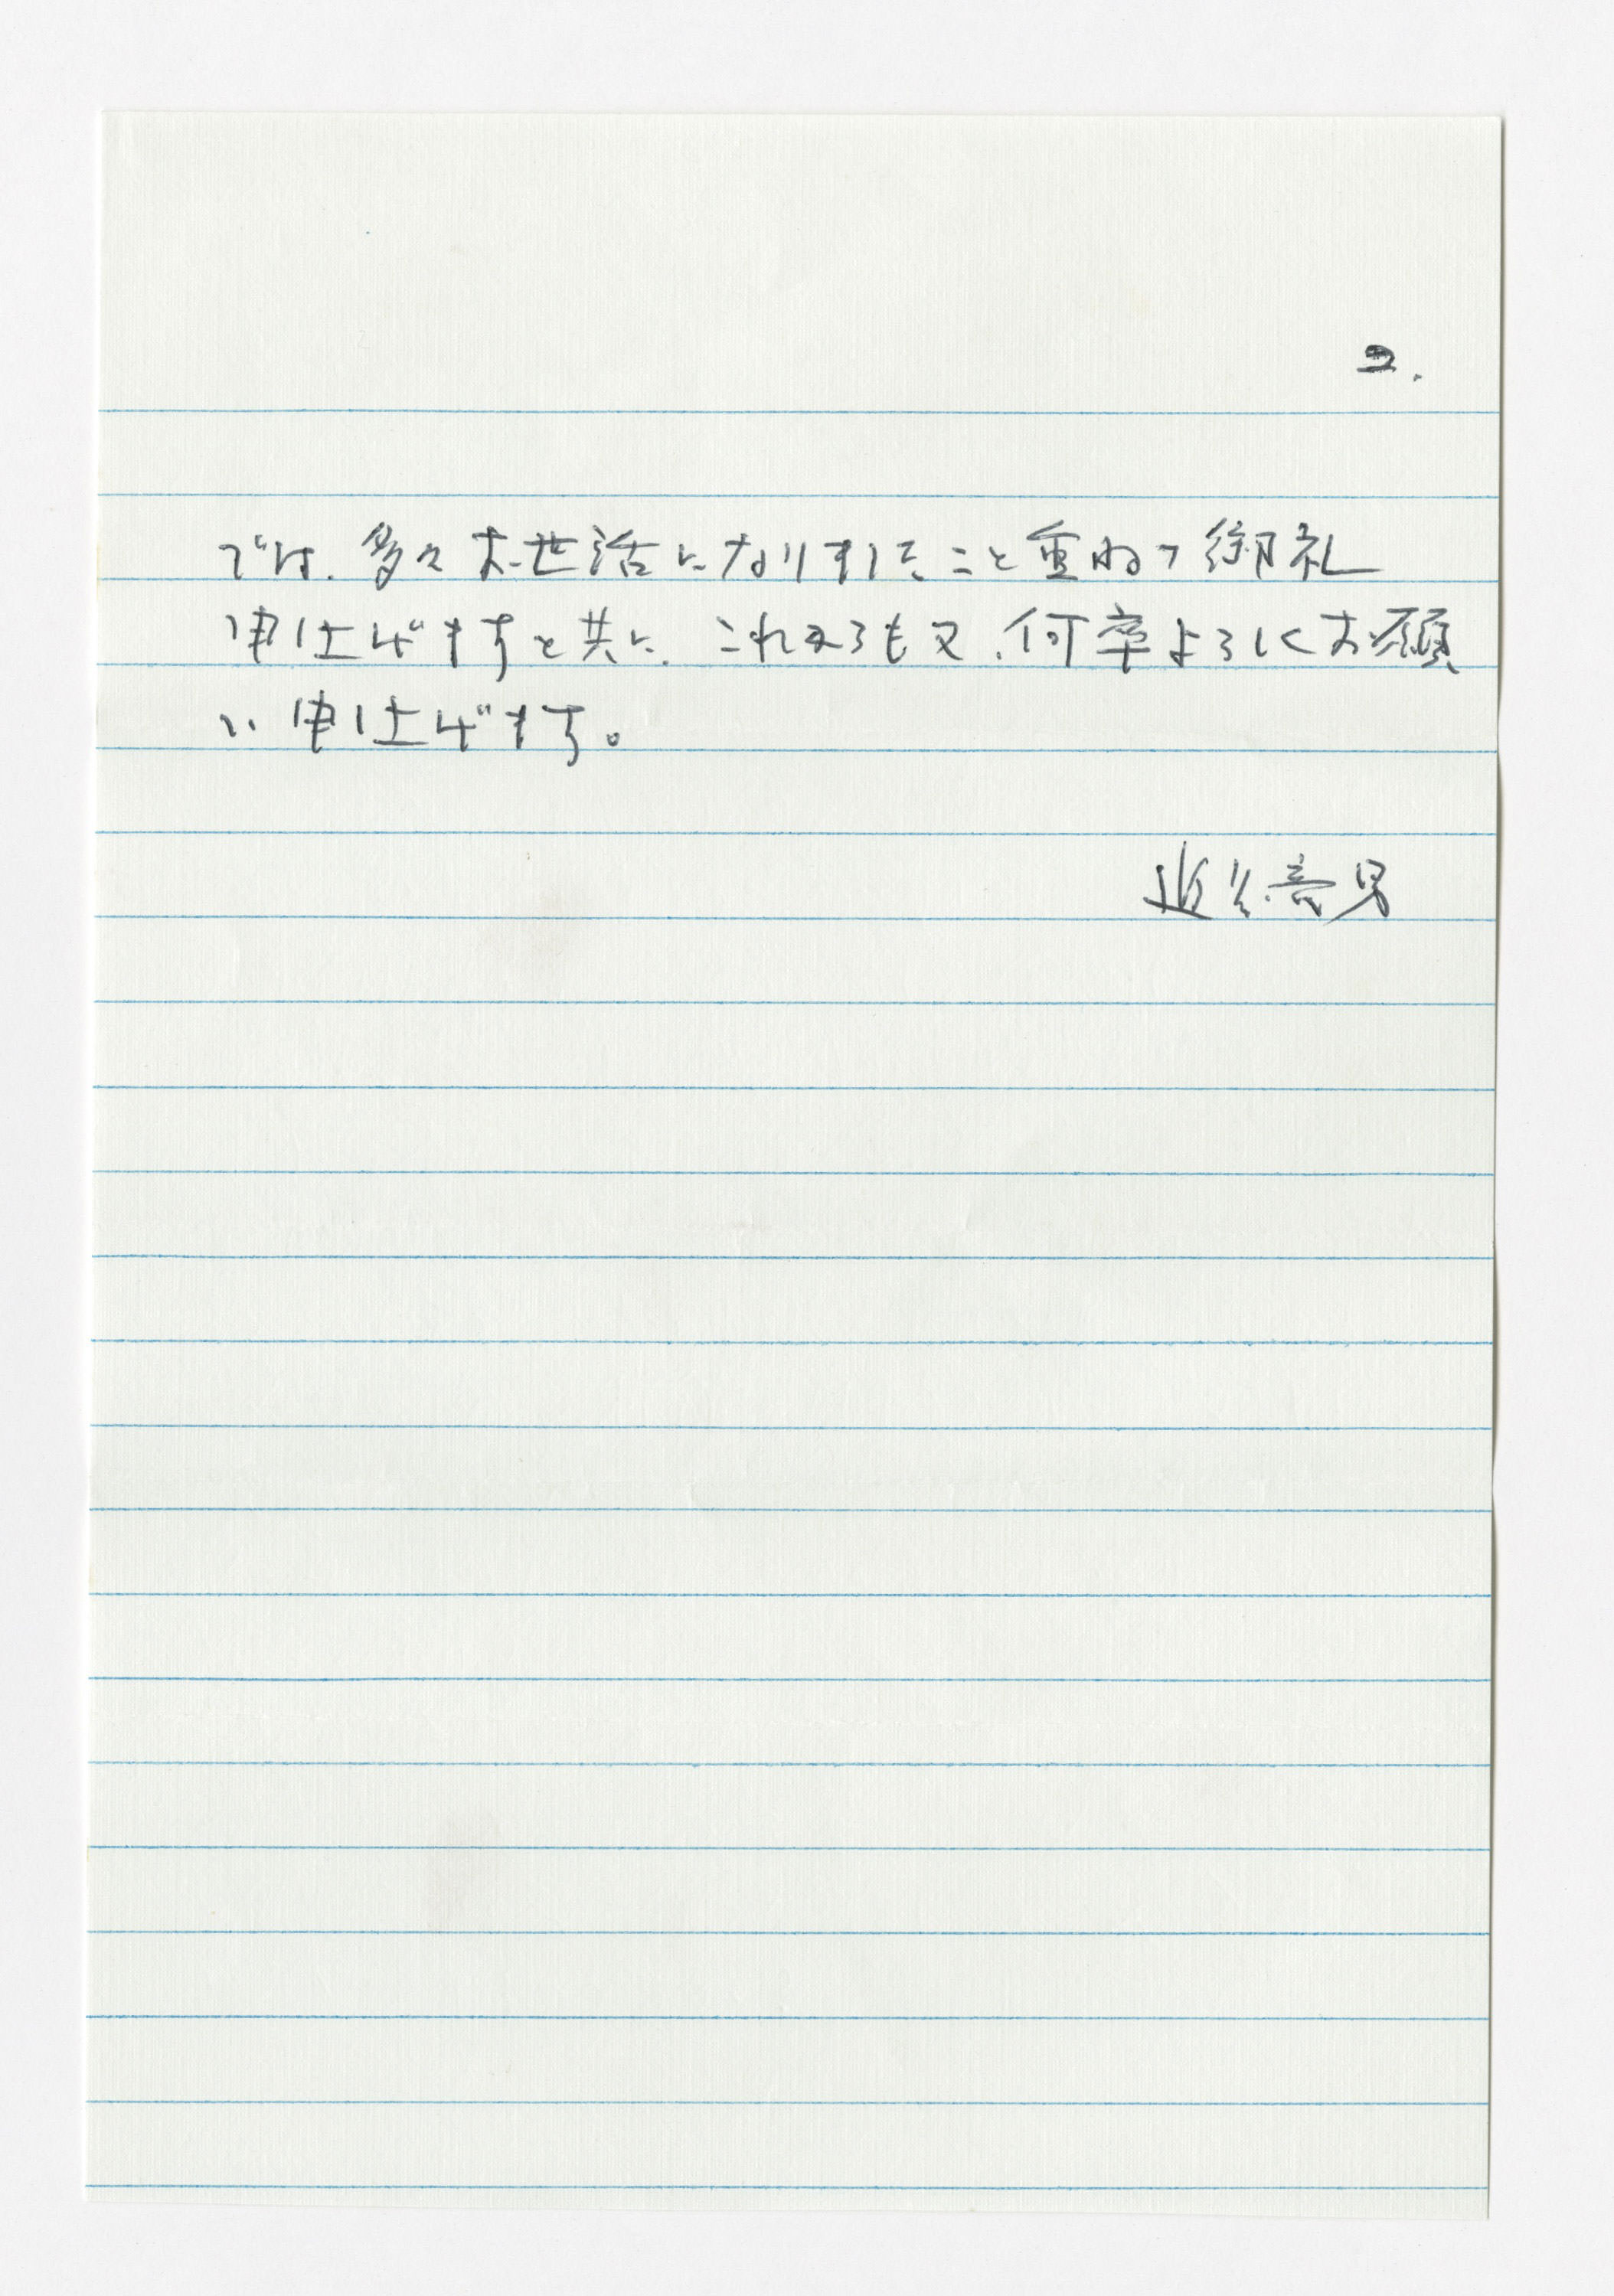 2.
では、多々お世話になりましたこと重ねて御礼
申し上げますと共に、これからも又、何卒よろしくお願
い申し上げます。